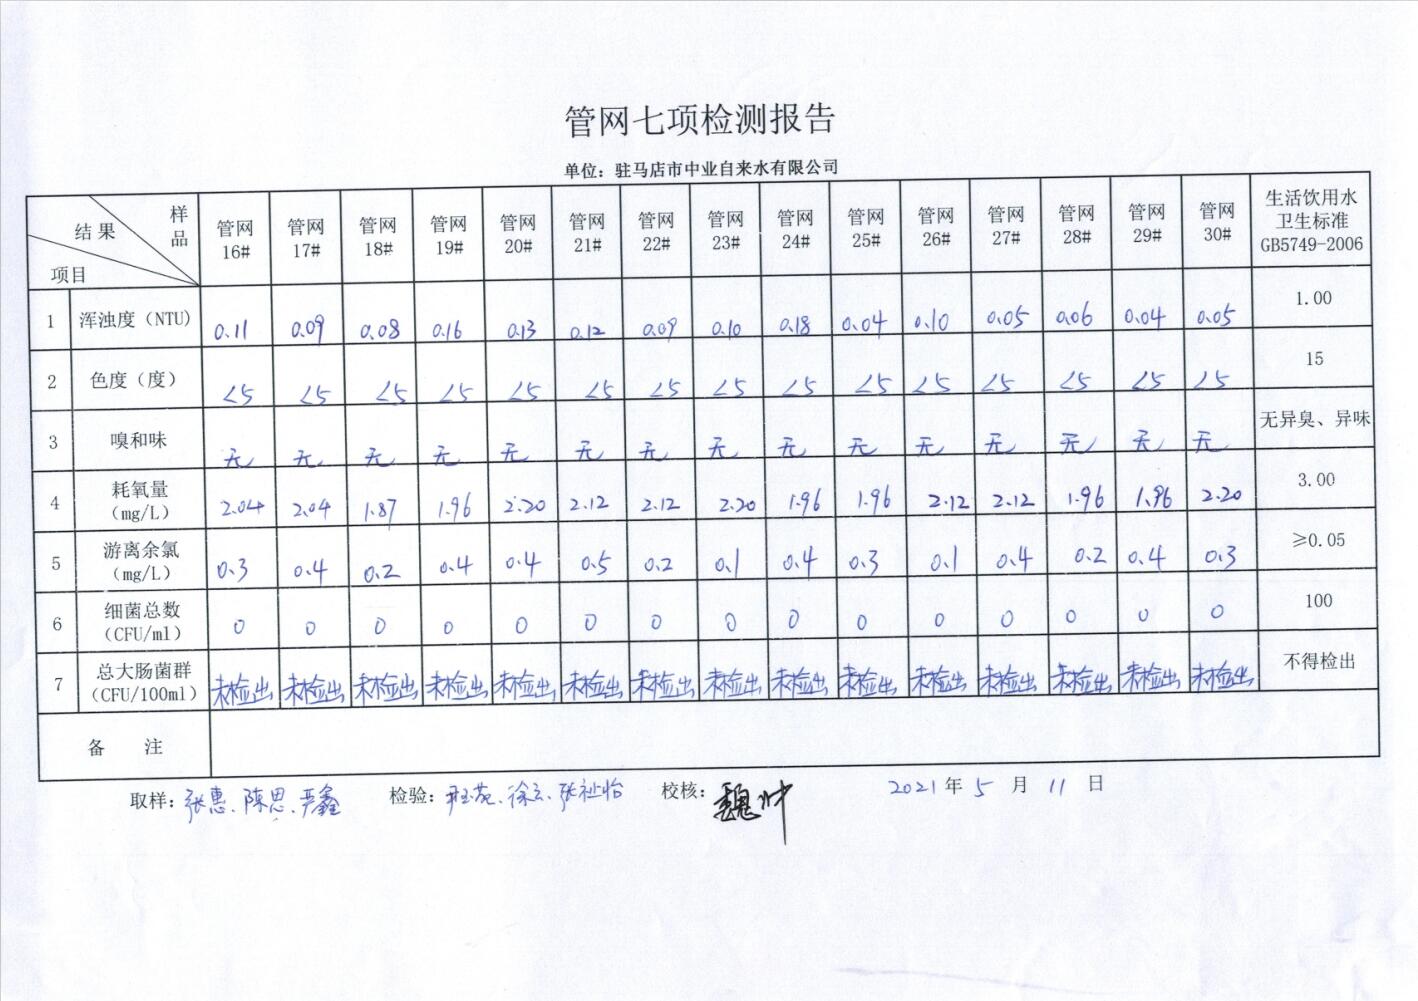 管网七项检测报告
单位：驻马店市中业自来水有限公司
结果 样品 项目 管网16# 管网17# 管网18# 管网19# 管网20# 管网21# 管网22# 管网23# 管网24# 管网25# 管网26# 管网27# 管网28# 管网29# 管网30# 生活饮用水卫生标准GB5749-2006
1 浑浊度（NTU） 0.11 0.09 0.08 0.16 0.13 0.12 0.09 0.10 0.18 0.04 0.10 0.05 0.06 0.04 0.05 1.00
2 色度（度） <5 <5 <5 <5 <5 <5 <5 <5 <5 <5 <5 <5 <5 <5 <5 15
3 嗅和味 无 无 无 无 无 无 无 无 无 无 无 无 无 无 无 无异臭、异味
4 耗氧量（mg/L） 2.04 2.04 1.87 1.96 2.20 2.12 2.12 2.20 1.96 1.96 2.12 2.12 1.96 1.96 2.20 3.00
5 游离余氯（mg/L） 0.3 0.4 0.2 0.4 0.4 0.5 0.2 0.1 0.4 0.3 0.1 0.4 0.2 0.4 0.3 ≥0.05
6 细菌总数（CFU/ml） 0 0 0 0 0 0 0 0 0 0 0 0 0 0 0 100
7 总大肠菌群（CFU/100ml） 未检出 未检出 未检出 未检出 未检出 未检出 未检出 未检出 未检出 未检出 未检出 未检出 未检出 未检出 未检出 不得检出
备 注
取样：张惠、陈思、严鑫 检验：徐云、张祉怡 校核：魏 2021年 5 月 11 日